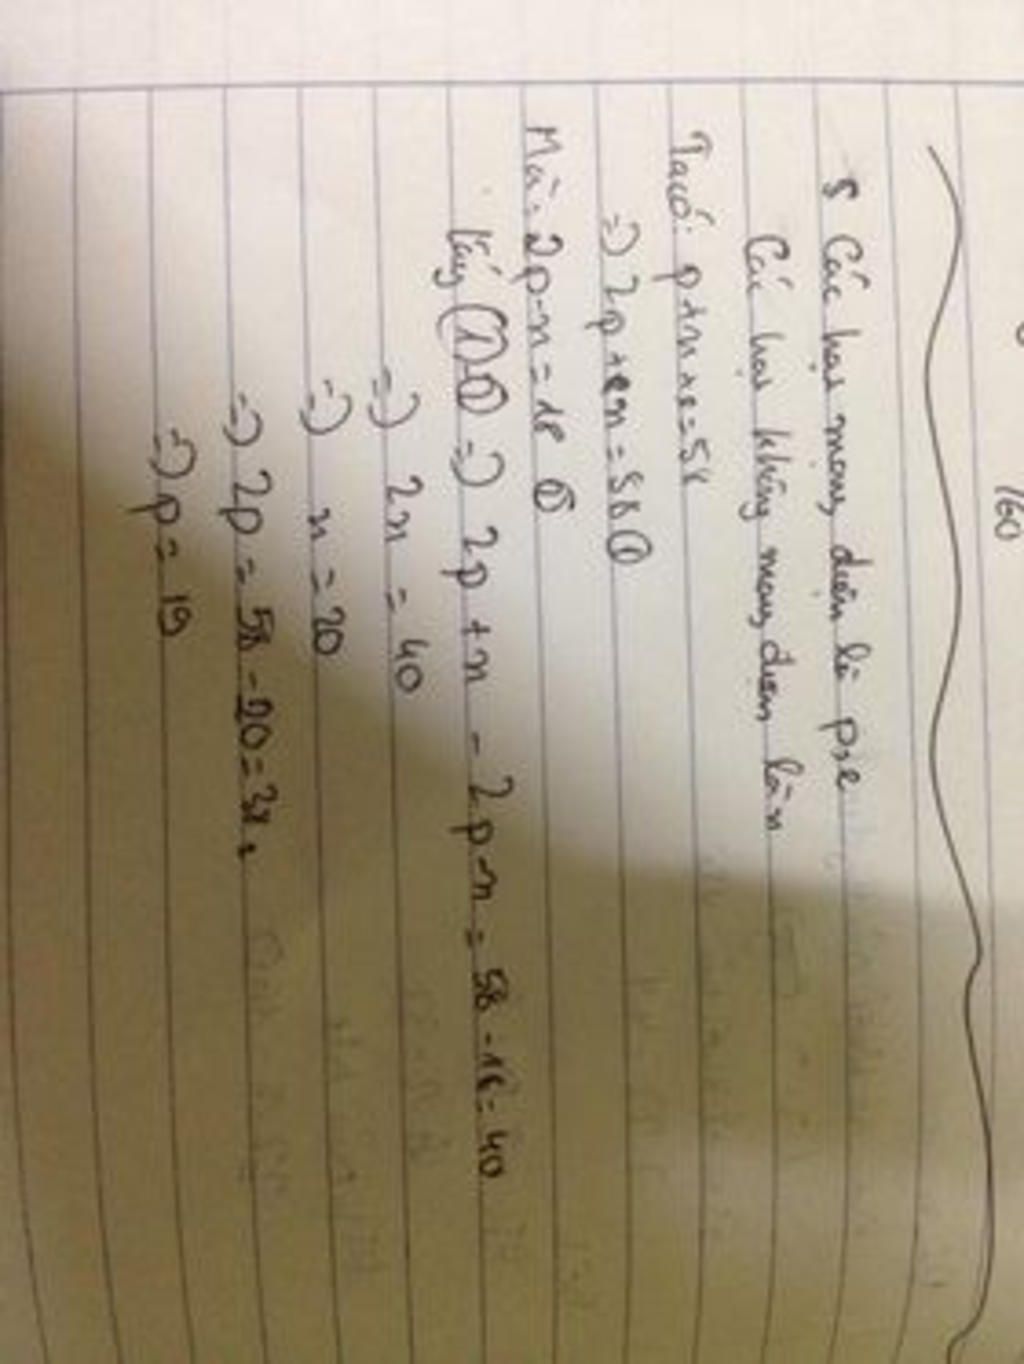 160
Các hạt mang điện là p,e
Các hạt không mang điện là n
Ta có: p+n+e=58
=> 2p+n=58 ①
Mà: 2p-n=18 ②
Lấy (①-②) => 2p+n-2p-n=58-18=40
=> 2n=40
=> n=20
=> 2p=58-20=38
=> p=19